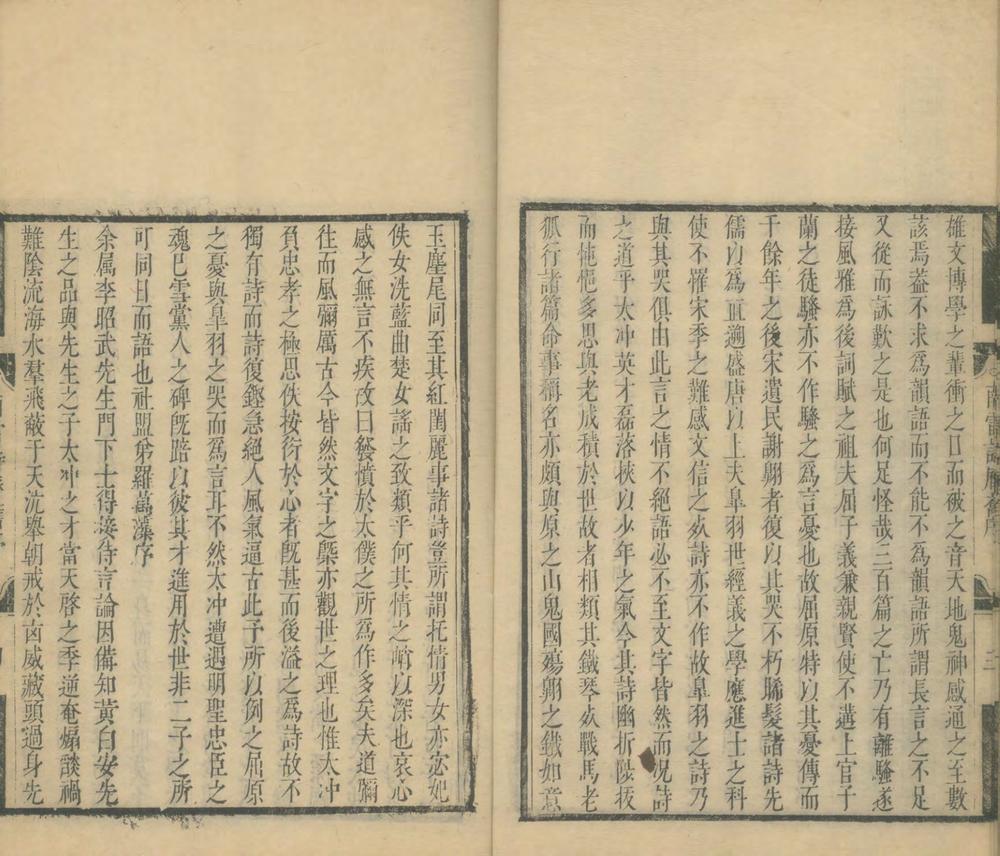 雄文博學之輩衝之口而被之音天地鬼神感通之至數
該焉葢不求爲韻語而不能不爲韻語所謂長言之不足
又從而詠歎之是也何足怪哉三百篇之亡乃有離騷遂
接風雅爲後詞賦之祖夫屈子義兼親賢使不遘上官子
蘭之徒騷亦不作騷之爲言憂也故屈原特以其憂傳而
千餘年之後宋遺民謝翺者復以其哭不朽睎髮諸詩先
儒以爲直遡盛唐以上夫臯羽世經義之學應進士之科
使不罹宋季之難感文信之死詩亦不作故臯羽之詩乃
與其哭俱由此言之情不絕語必不至文字皆然而况詩
之道乎太冲英才磊落挾以少年之氣今其詩幽折險拔
而拖𢗅多思與老成積於世故者相類其鐵琴死戰馬老
孤行諸篇命事稱名亦頗與原之山鬼國殤翺之鐵如意
玉麈尾同至其紅閨麗事諸詩豈所謂托情男女亦宓妃
佚女洗藍曲楚女謠之致類乎何其情之峭以深也哀心
感之無言不疾故曰發憤於太僕之所爲作多矣夫道彌
往而風彌厲古今皆然文字之槩亦觀世之理也惟太冲
負忠孝之極思佚按衍於心者旣甚而後溢之爲詩故不
獨有詩而詩復鏗急絕人風氣逼古此予所以例之屈原
之憂與臯羽之哭而爲言耳不然太冲遭遇明聖忠臣之
魂已雪黨人之碑旣踣以彼其才進用於世非二子之所
可同日而語也社盟弟羅萬藻序
余属李昭武先生門下士得接侍言論因備知黃白安先
生之品與先生之子太冲之才當天啓之季逆奄煽談禍
難陰流海水羣飛蔽于天沈舉朝戒於卤威藏頭過身先